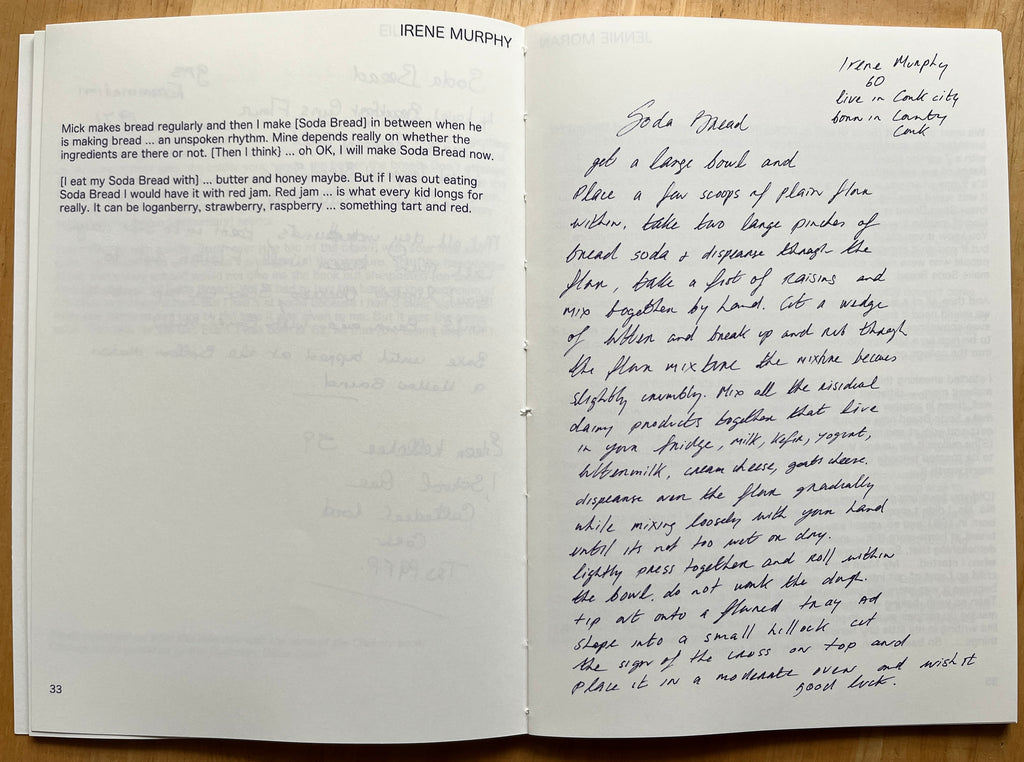 IRENE MURPHY
Mick makes bread regularly and then I make [Soda Bread] in between when he
is making bread ... an unspoken rhythm. Mine depends really on whether the
ingredients are there or not. [Then I think} ... oh OK, I will make Soda Bread now.
[I eat my Soda Bread with] ... butter and honey maybe. But if I was out eating
Soda Bread I would have it with red jam. Red jam ... is what every kid longs for
really. It can be loganberry, strawberry, raspberry ... something tart and red.
33
Irene Murphy
60
live in Cork city
born in County
Cork
Soda Bread
get a large bowl and
Place a few scoops of plain flour
within, take two large pinches of
bread soda + dispearse through the
flour, take a fist of raisins and
mix together by hand. Cut a wedge
of butter and break up and rub through
the flour mixture the mixture becomes
slightly crumbly. Mix all the risidual
dairy products together that live
in your fridge, milk, kefir, yogurt,
buttermilk, cream cheese, goats cheese.
dispearse over the flour gradually
while mixing loosely with your hand
until its not too wet or dry.
lightly press together and roll within
the bowl. do not work the dough.
tip out onto a floured tray ad
shape into a small hillock cut
the sign of the cross on top and
place it in a moderate oven and wish it
good luck.